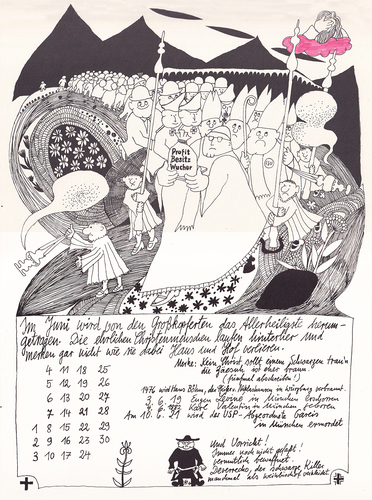 Profit
Besitz
Wucher
Im Juni wird von den Großkopferten das Allerheiligste herum-
getragen. Die ehrlichen Christenmenschen laufen hinterher und
merken gar nicht wie sie dabei Haus und Hof verlieren.
Merke: Kein Christ, sollt einem Schwarzen trau'n
die Gaensie ist eher braun.
(fünfmal abschreiben!)
4 11 18 25
5 12 19 26
6 13 20 27
7 14 21 28
1 8 15 22 29
2 9 16 23 30
3 10 17 24
1476 wird Hans Böhm, der Pfeifer in Würzburg verbrannt.
3. 6. 19 Eugen Leviné in München erschossen
4. 6. 1882 Karl Valentin in München geboren
Am 10. 6. 21 wird der USP-Abgeordnete Gareis
in München ermordet
Und Vorsicht!
Immer noch nicht gefaßt!
vermutlich bewaffnet.
der schwarze Killer
manchmal als verkleidet